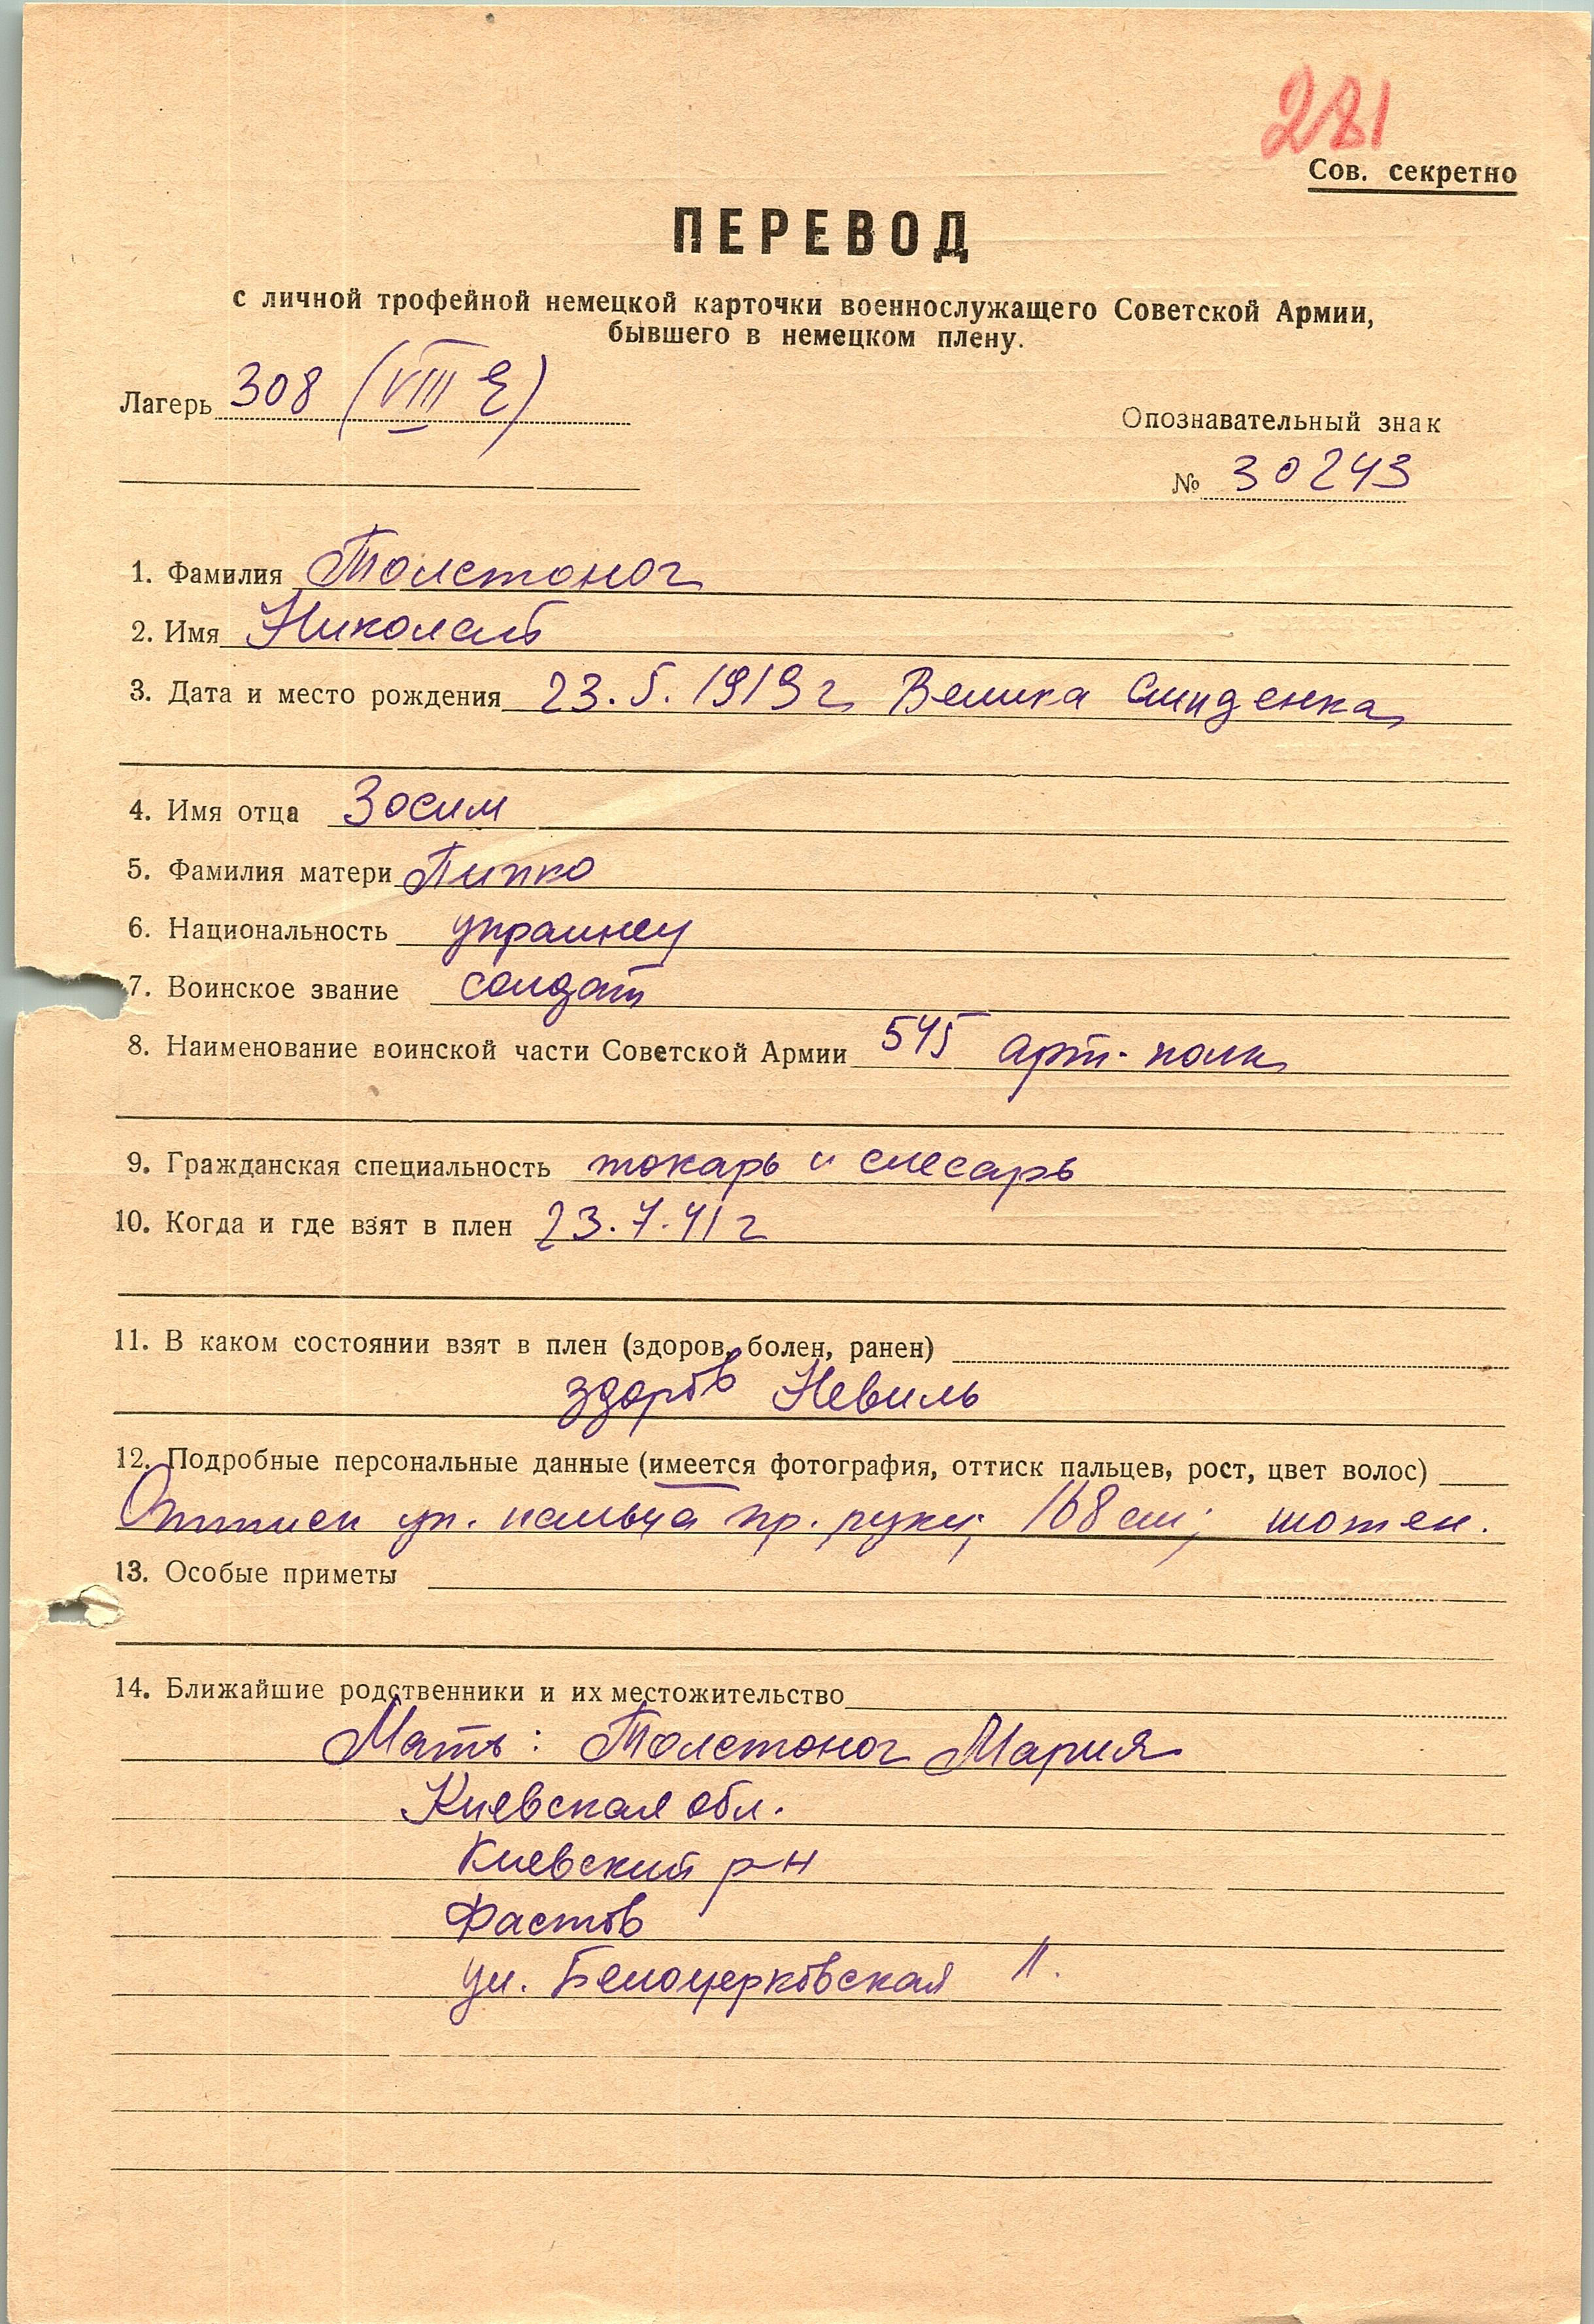 281
Сов. секретно
ПЕРЕВОД
с личной трофейной немецкой карточки военнослужащего Советской Армии,
бывшего в немецком плену.
Лагерь 308 (VIII E)
Опознавательный знак
№ 30243
1. Фамилия Толстоног
2. Имя Николай
3. Дата и место рождения 23.5.1919 г Велика
4. Имя отца Зосим
5. Фамилия матери Пипко
6. Национальность украинец
7. Воинское звание солдат
8. Наименование воинской части Советской Армии 545 арт. полк
9. Гражданская специальность токарь и слесарь
10. Когда и где взят в плен 23.7.41 г
11. В каком состоянии взят в плен (здоров, болен, ранен)
здоров Невиль
12. Подробные персональные данные (имеется фотография, оттиск пальцев, рост, цвет волос)
Оттиск ук. пальца пр. руки; 168 см; шатен.
13. Особые приметы
14. Ближайшие родственники и их местожительство
Мать: Толстоног Мария
Киевская обл.
Киевский р-н
Фастов
ул. Белоцерковская